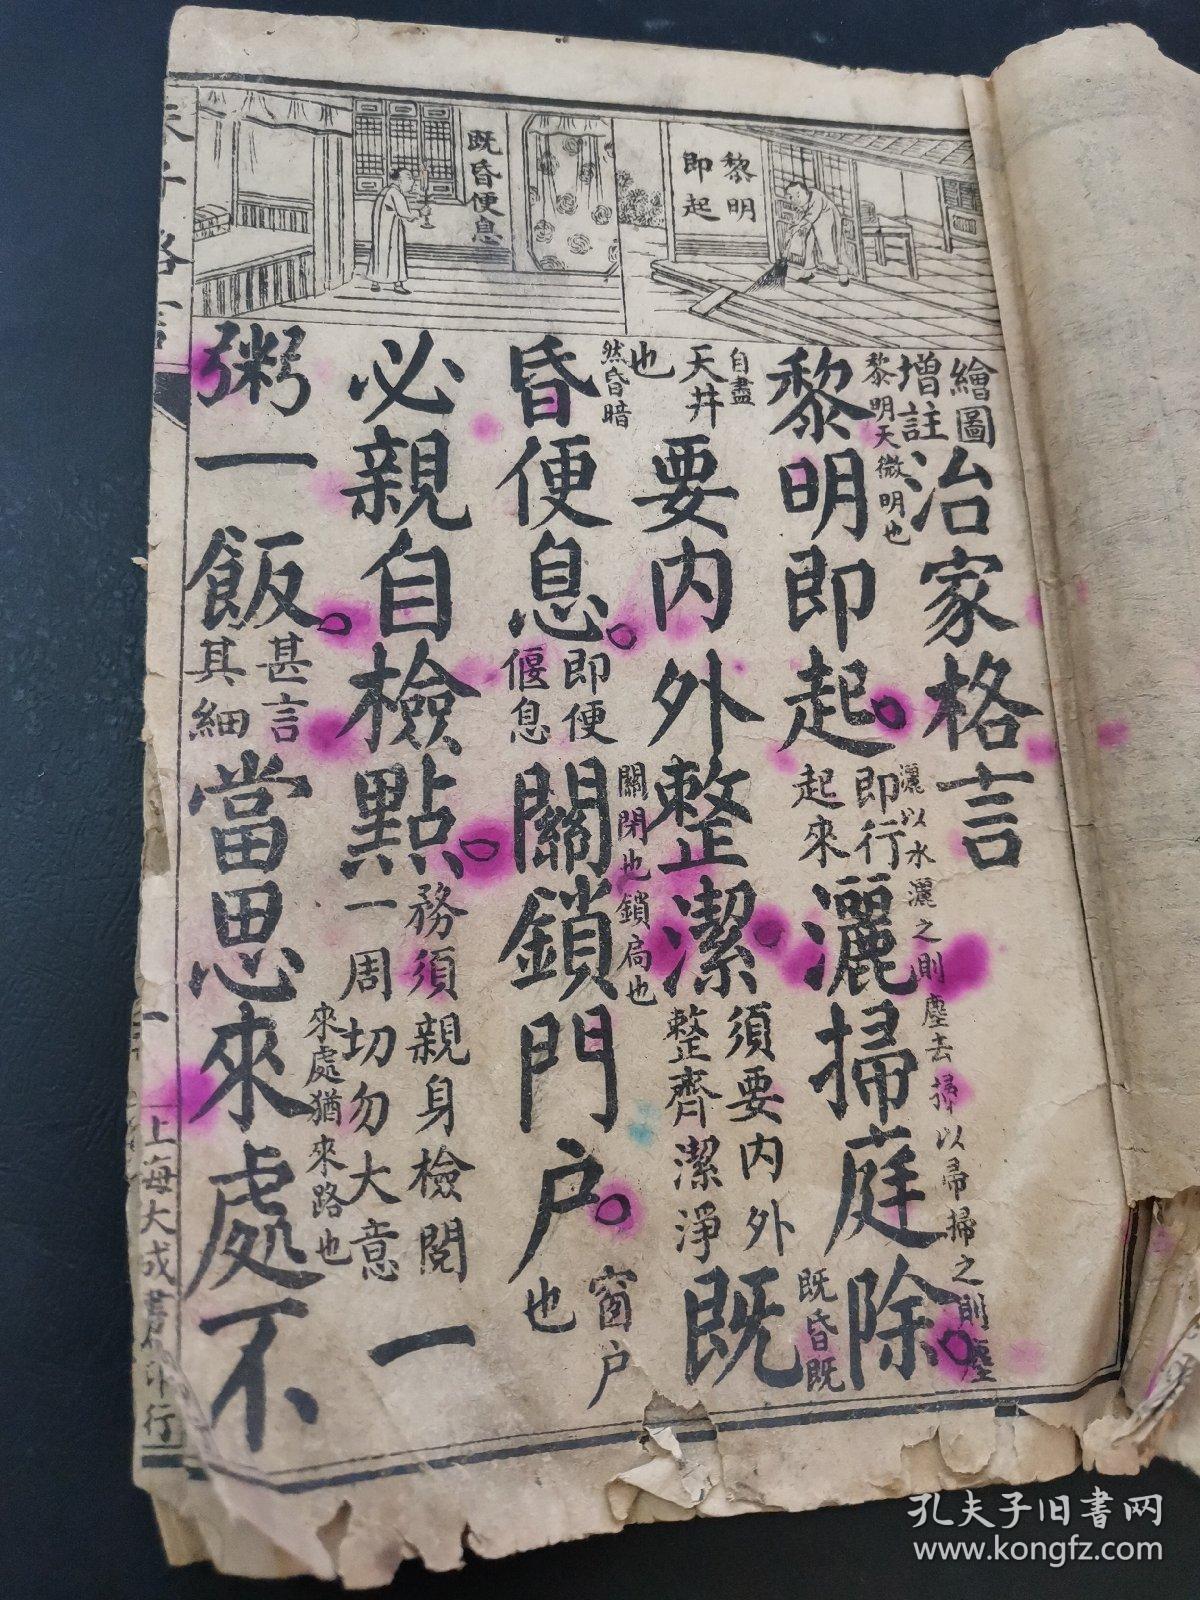 黎明
即起
既昏便息
繪圖
增註
治家格言
黎明天微明也
黎明即起
即行
起來
灑掃庭除
灑以水灑之則塵去掃以帚掃之則塵
自盡
天井
也
要內外整潔
須要內外
整齊潔淨
既
既昏既
然昏暗
昏便息
即便
偃息
關鎖門户
關閉也鎖扃也
窗户
也
必親自檢點
務須親身檢閱
一周切勿大意
一
粥一飯
甚言
其細
當思來處不
來處猶來路也
一
上海大成書局印行
孔夫子旧书网
www.kongfz.com